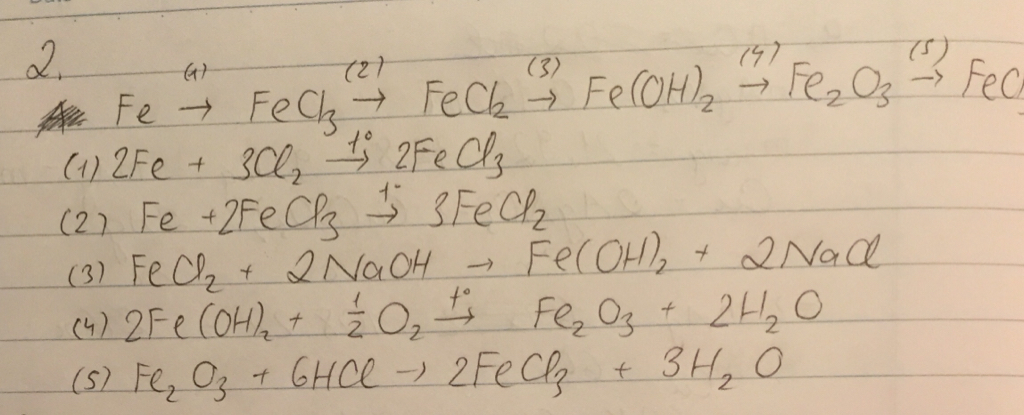 2.
Fe (1)→ FeCl3 (2)→ FeCl2 (3)→ Fe(OH)2 (4)→ Fe2O3 (5)→
(1) 2Fe + 3Cl2 t°→ 2FeCl3
(2) Fe + 2FeCl3 t°→ 3FeCl2
(3) FeCl2 + 2NaOH → Fe(OH)2 + 2NaCl
(4) 2Fe(OH)2 + 1/2 O2 t°→ Fe2O3 + 2H2O
(5) Fe2O3 + 6HCl → 2FeCl3 + 3H2O